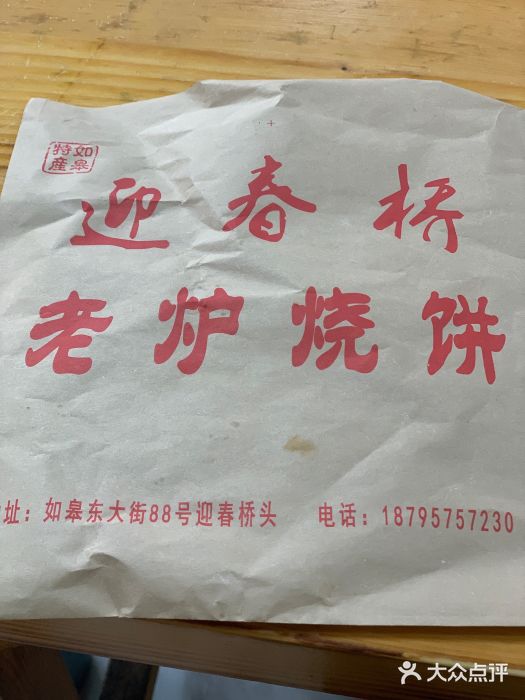 如皋特産
迎春桥
老炉烧饼
址：如皋东大街88号迎春桥头 电话：18795757230
大众点评